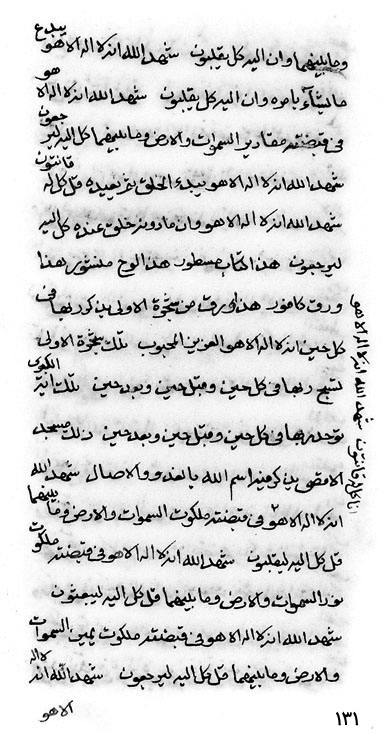 وما بينهما وان اليه كل يقلبون شهد الله انه لا اله الا هو يبدع
ما يشآء بامره وان اليه كل يقلبون شهد الله انه لا اله الا هو
في قبضته مقادير السموات والارض وما بينهما كل اليه ليرجعون
شهد الله انه لا اله الا هو يبدء الخلق ثم يعيده قل كل له قانتون
شهد الله انه لا اله الا هو وان ما دونه خلق عنده كل اليه
ليرجعون هذا كتاب مسطور هذا لوح منشور هذا
ورق كافور هذا ورق من شجرة الاولى يذكر ربها في
كل حين انه لا اله الا هو العزيز المحبوب تلك شجرة الاولى
تسبح ربها في كل حين وقبل حين وبعد حين تلك
توحد ربها في كل حين وقبل حين وبعد حين ذلك مسجد
الاقصى يذكر فيه اسم الله بالغدو والاصال شهد الله
انه لا اله الا هو في قبضته ملكوت السموات والارض وما بينهما
قل كل اليه ليقلبون شهد الله انه لا اله الا هو في قبضته ملكوت
السموات والارض وما بينهما قل كل اليه ليبعثون
شهد الله انه لا اله الا هو في قبضته ملكوت السموات
والارض وما بينهما قل كل اليه ليرجعون شهد الله انه لا اله
الا هو
شهد الله انه لا اله الا هو
انا كل له قانتون
١٣١